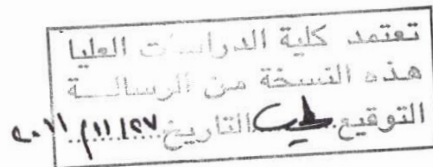 تعتمد كلية الدراسات العليا
هذه النسخة من الرسالــــة
التوقيع التاريخ ٢٠١١/١١/٢٧